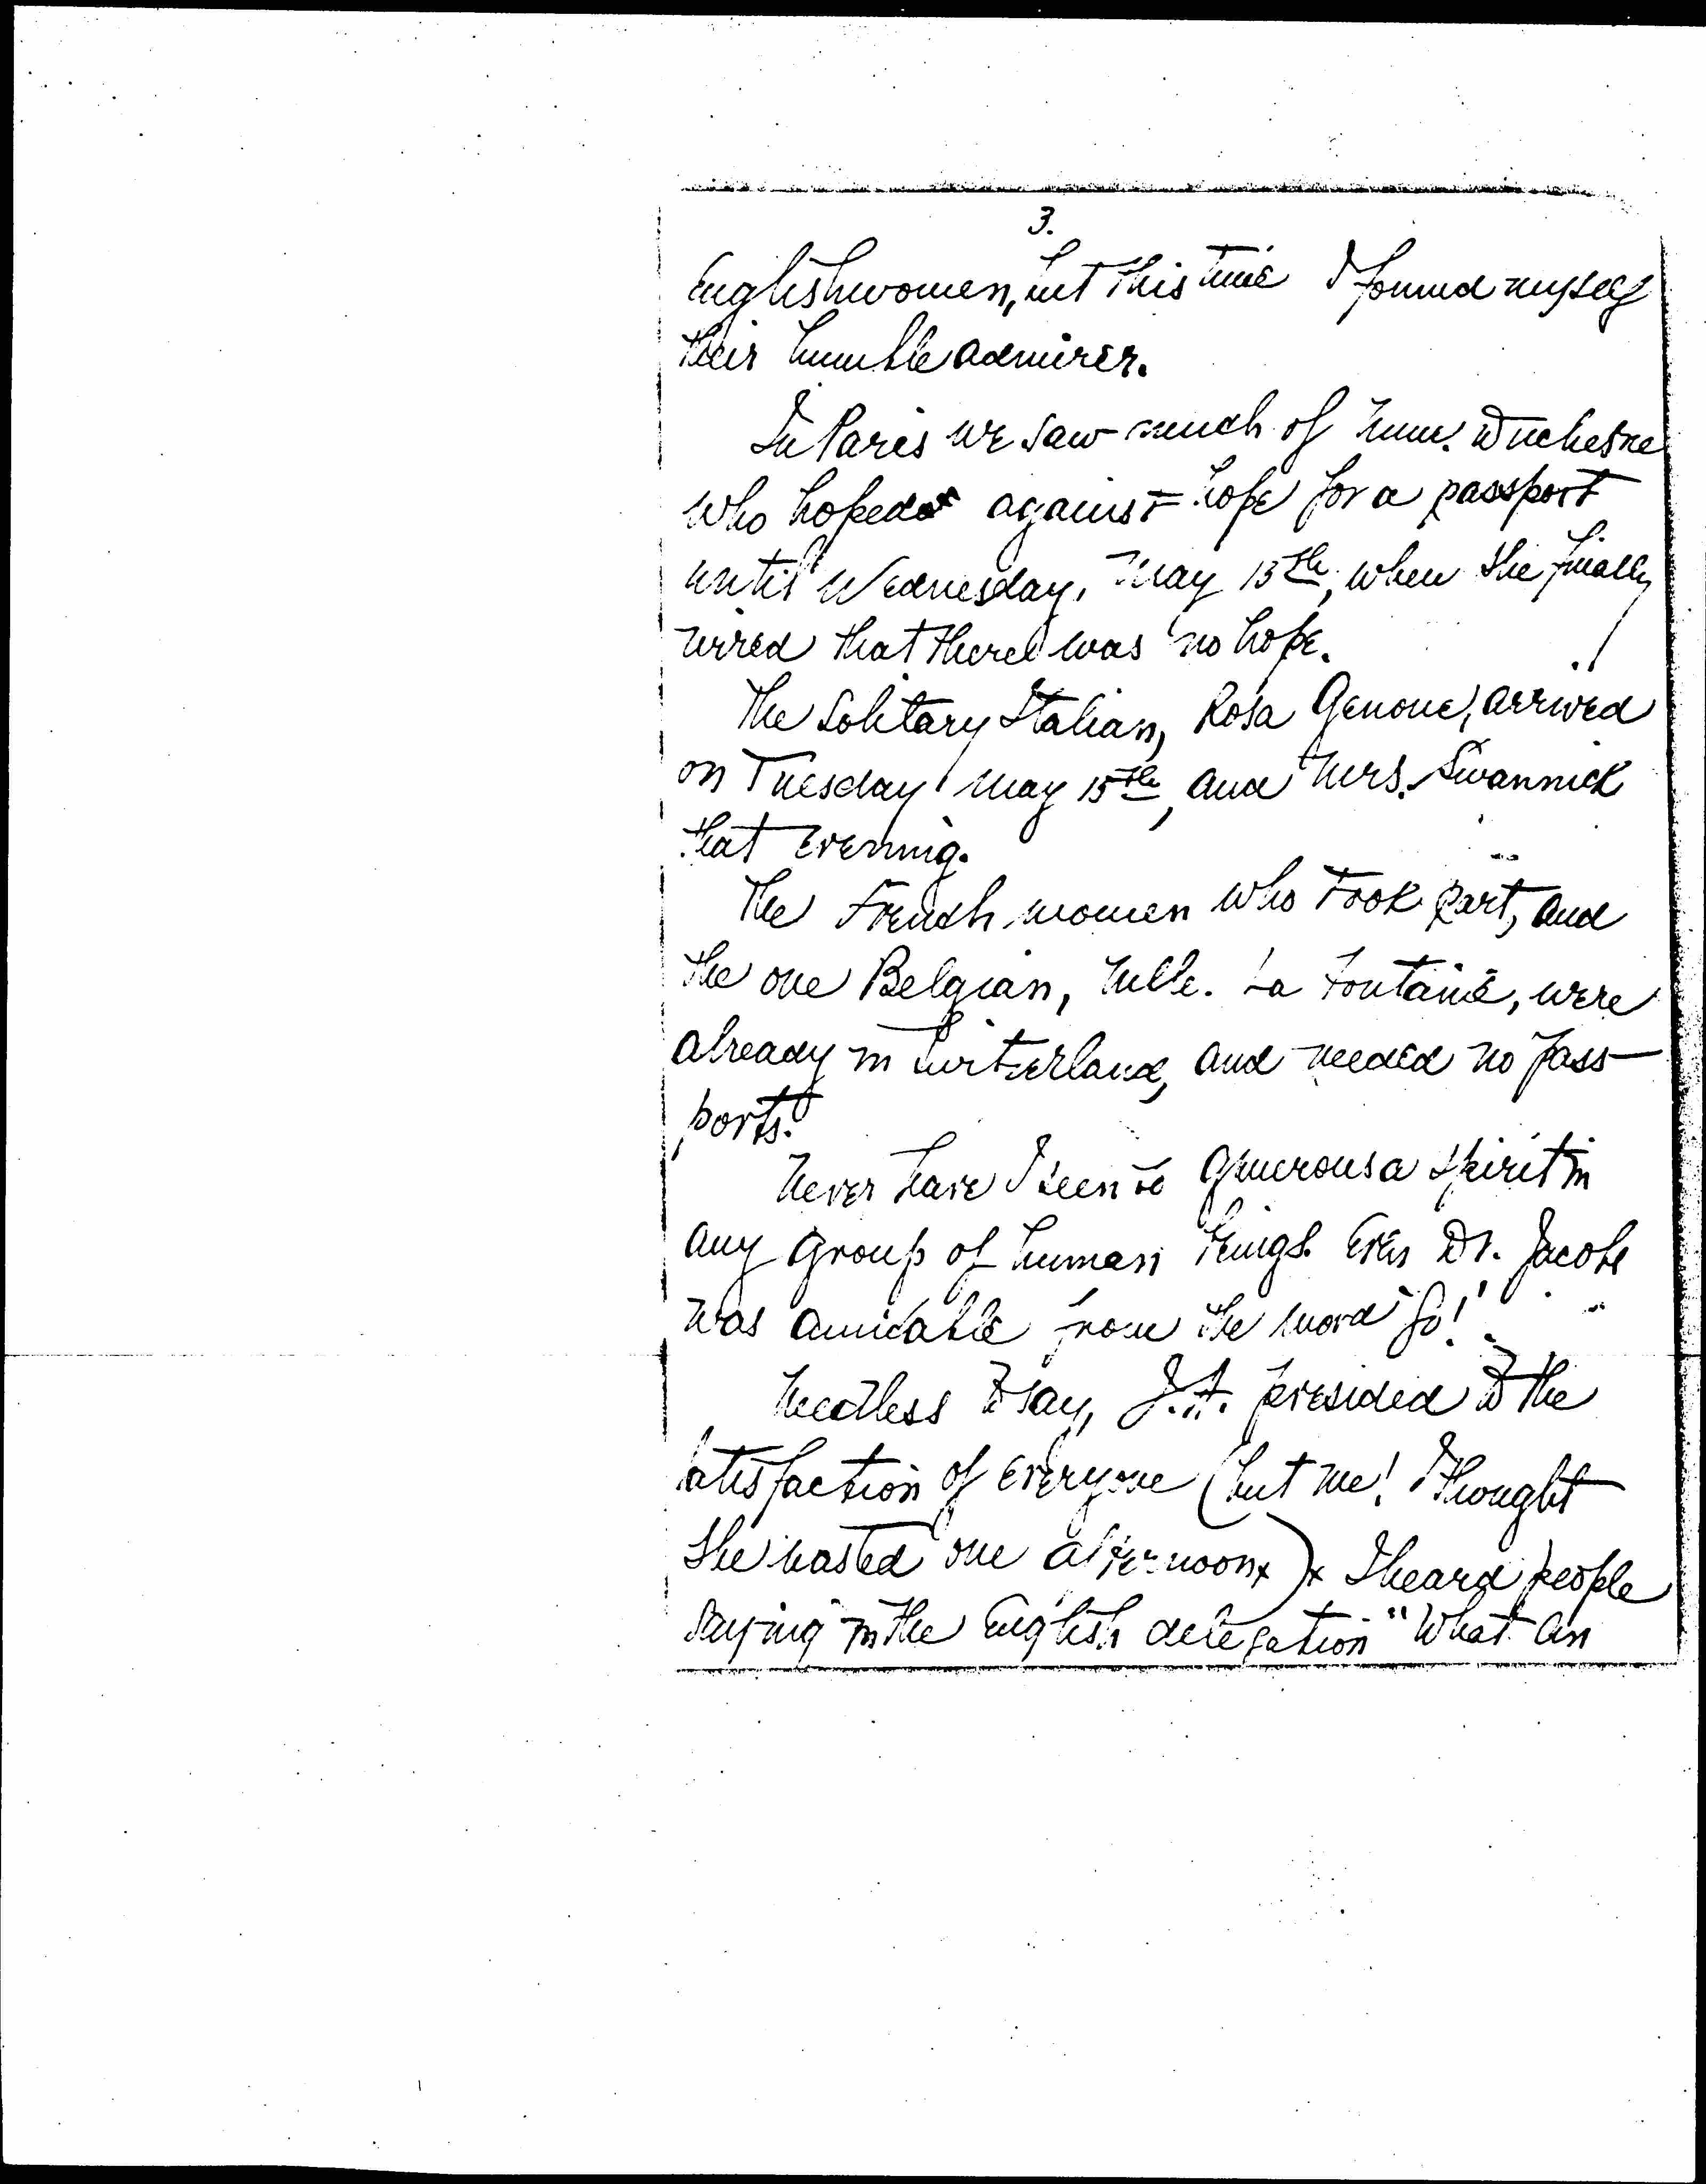 3.
Englishwomen, but this time I found myself
their humble admirer.
In Paris we saw much of Mme. Duchesne
who hoped against hope for a passport
until Wednesday, May 15th, when she finally
wired that there was no hope.
The solitary Italian, Rosa Genone, arrived
on Tuesday May 15th, and Mrs. Swannick
that evening.
The French women who took part, and
the one Belgian, Mlle. La Fontaine, were
already in Switzerland, and needed no pass-
ports.
Never have I seen so generous a spirit in
any group of human beings. Even Dr. Jacobs
was amicable from the word go!
Needless to say, J.A. presided to the
satisfaction of everyone (but me! I thought
she wasted one afternoon) I heard people
saying in the English delegation "What an